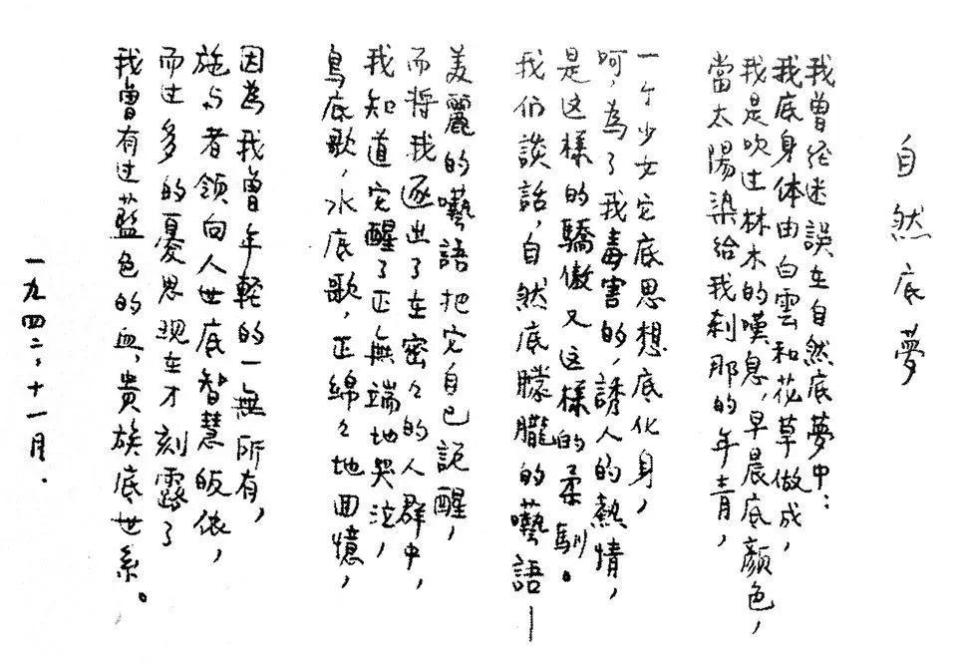 自然底夢
我曾经迷誤在自然底夢中：
我底身体由白雲和花草做成，
我是吹过林木的嘆息，早晨底顏色，
當太陽染給我刹那的年青，
一个少女它底思想底化身，
呵，為了我毒害的，誘人的熱情，
是这樣的驕傲又这樣的柔馴。
我们談話，自然底朦朧的囈語—
美麗的囈語把它自己説醒，
而將我逐出了在密々的人群中，
我知道它醒了正無端地哭泣，
鳥底歌，水底歌，正綿々地回憶，
因為我曾年輕的一無所有，
施与者領向人世底智慧皈依，
而过多的憂思現在才刻露了
我曾有过藍色的血，貴族底世系。
一九四二，十一月.